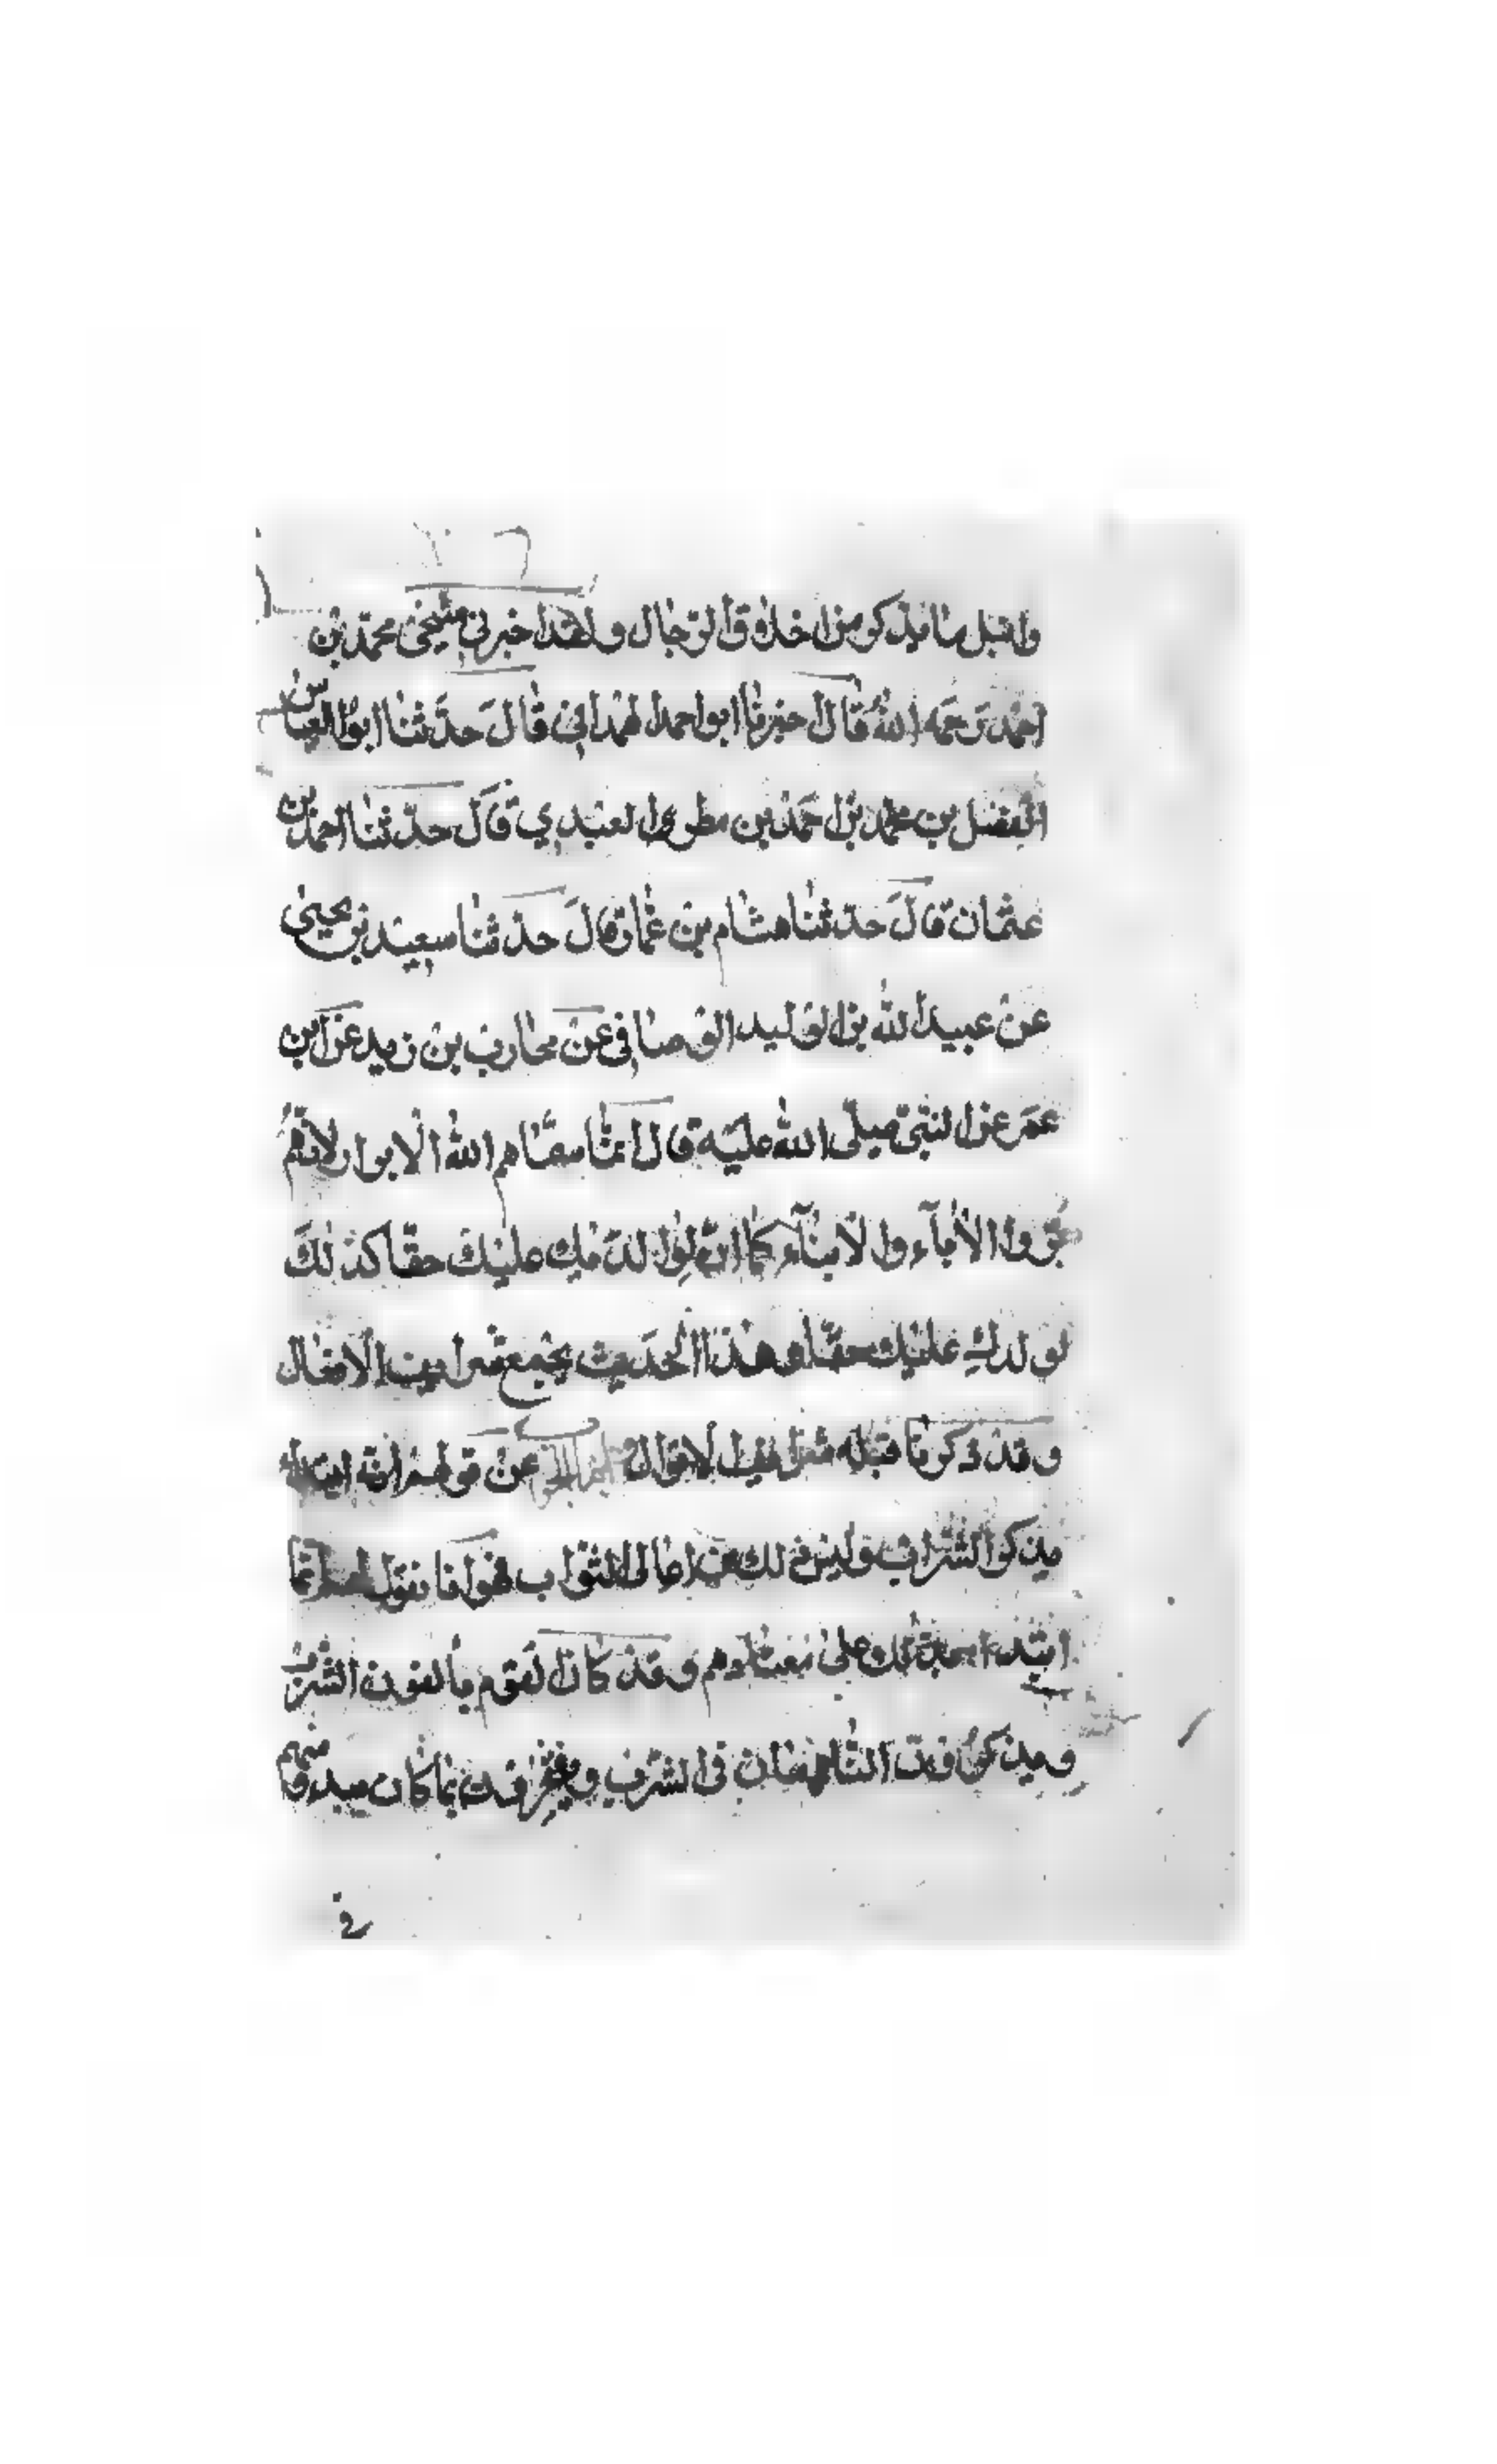 واقبل ما يذكر من اخلاق الرجال ولقد اخبرني شيخي محمد بن
احمد رحمه الله قال اخبرنا ابو احمد الهمداني قال حدثنا ابو العباس
الفضل بن محمد بن احمد بن العبدي قال حدثنا احمد بن
عثمان قال حدثنا هشام بن عمار قال حدثنا سعيد بن يحيى
عن عبيد الله بن الوليد الوصافي عن محارب بن زيد عن ابن
عمر عن النبي صلى الله عليه قال انما سماهم الله الابرار لانهم
بروا الاباء والابناء كما ان لوالديك عليك حقا كذلك
لولدك عليك حقا وهذا الحديث يجمع الافعال
وقد ذكرنا قبله الاقوال عن قولهم انه ابتداء
بذكر الشراب وليس ذلك من اعالي الثواب فهو انا نقول انما
ابتداء بذلك على معتادهم وقد كان القوم يألفون الشراب
ويذكرون في الشرف ويفتخرون بما كان منهم
في